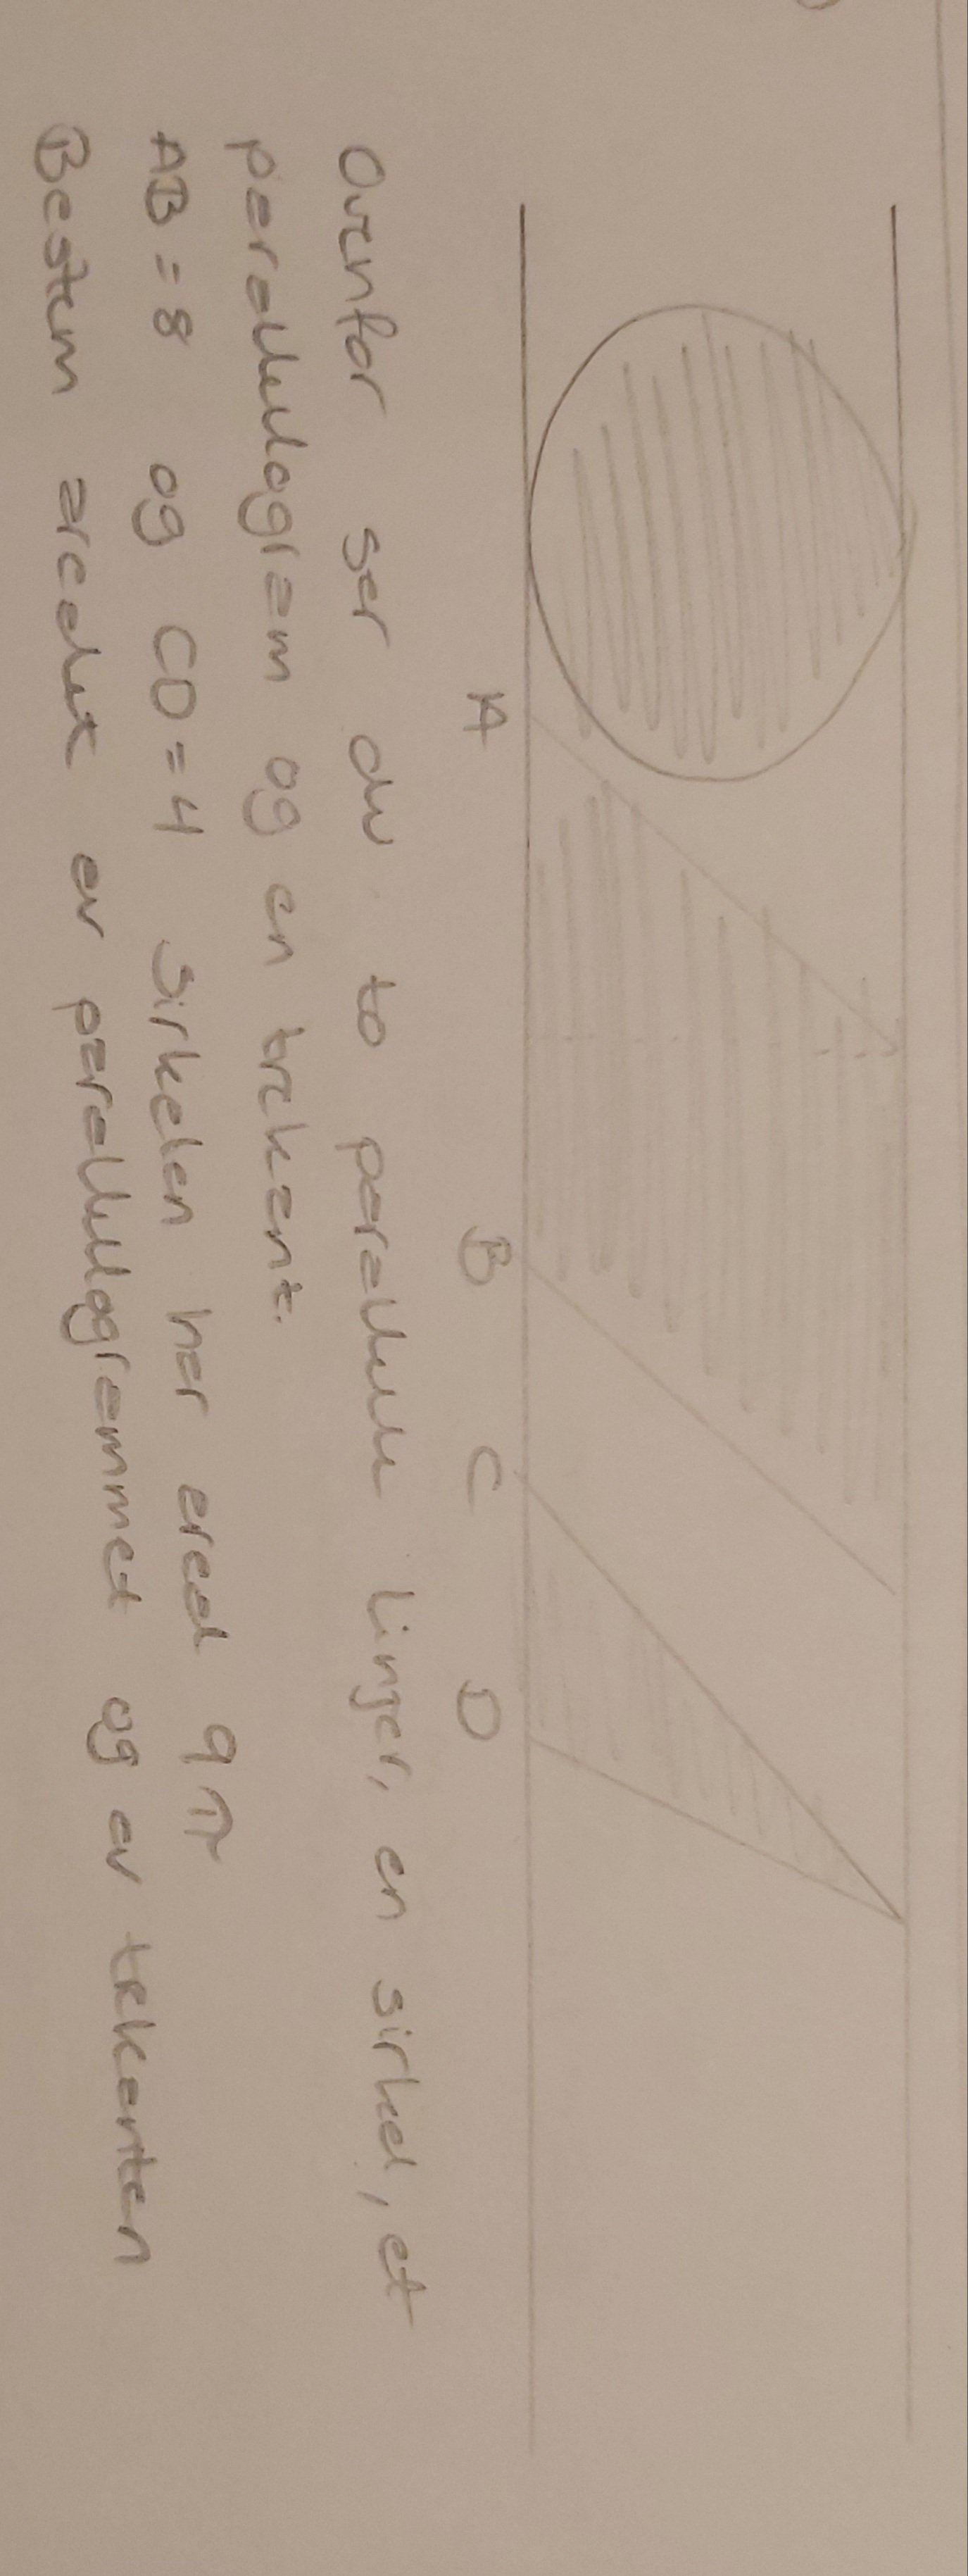 A B C D
Ovenfor ser du to parallelle linjer, en sirkel, et
parallellogram og en trekant.
AB = 8 og CD = 4 Sirkelen har areal 9π
Bestem arealet av parallellogrammet og av trekanten